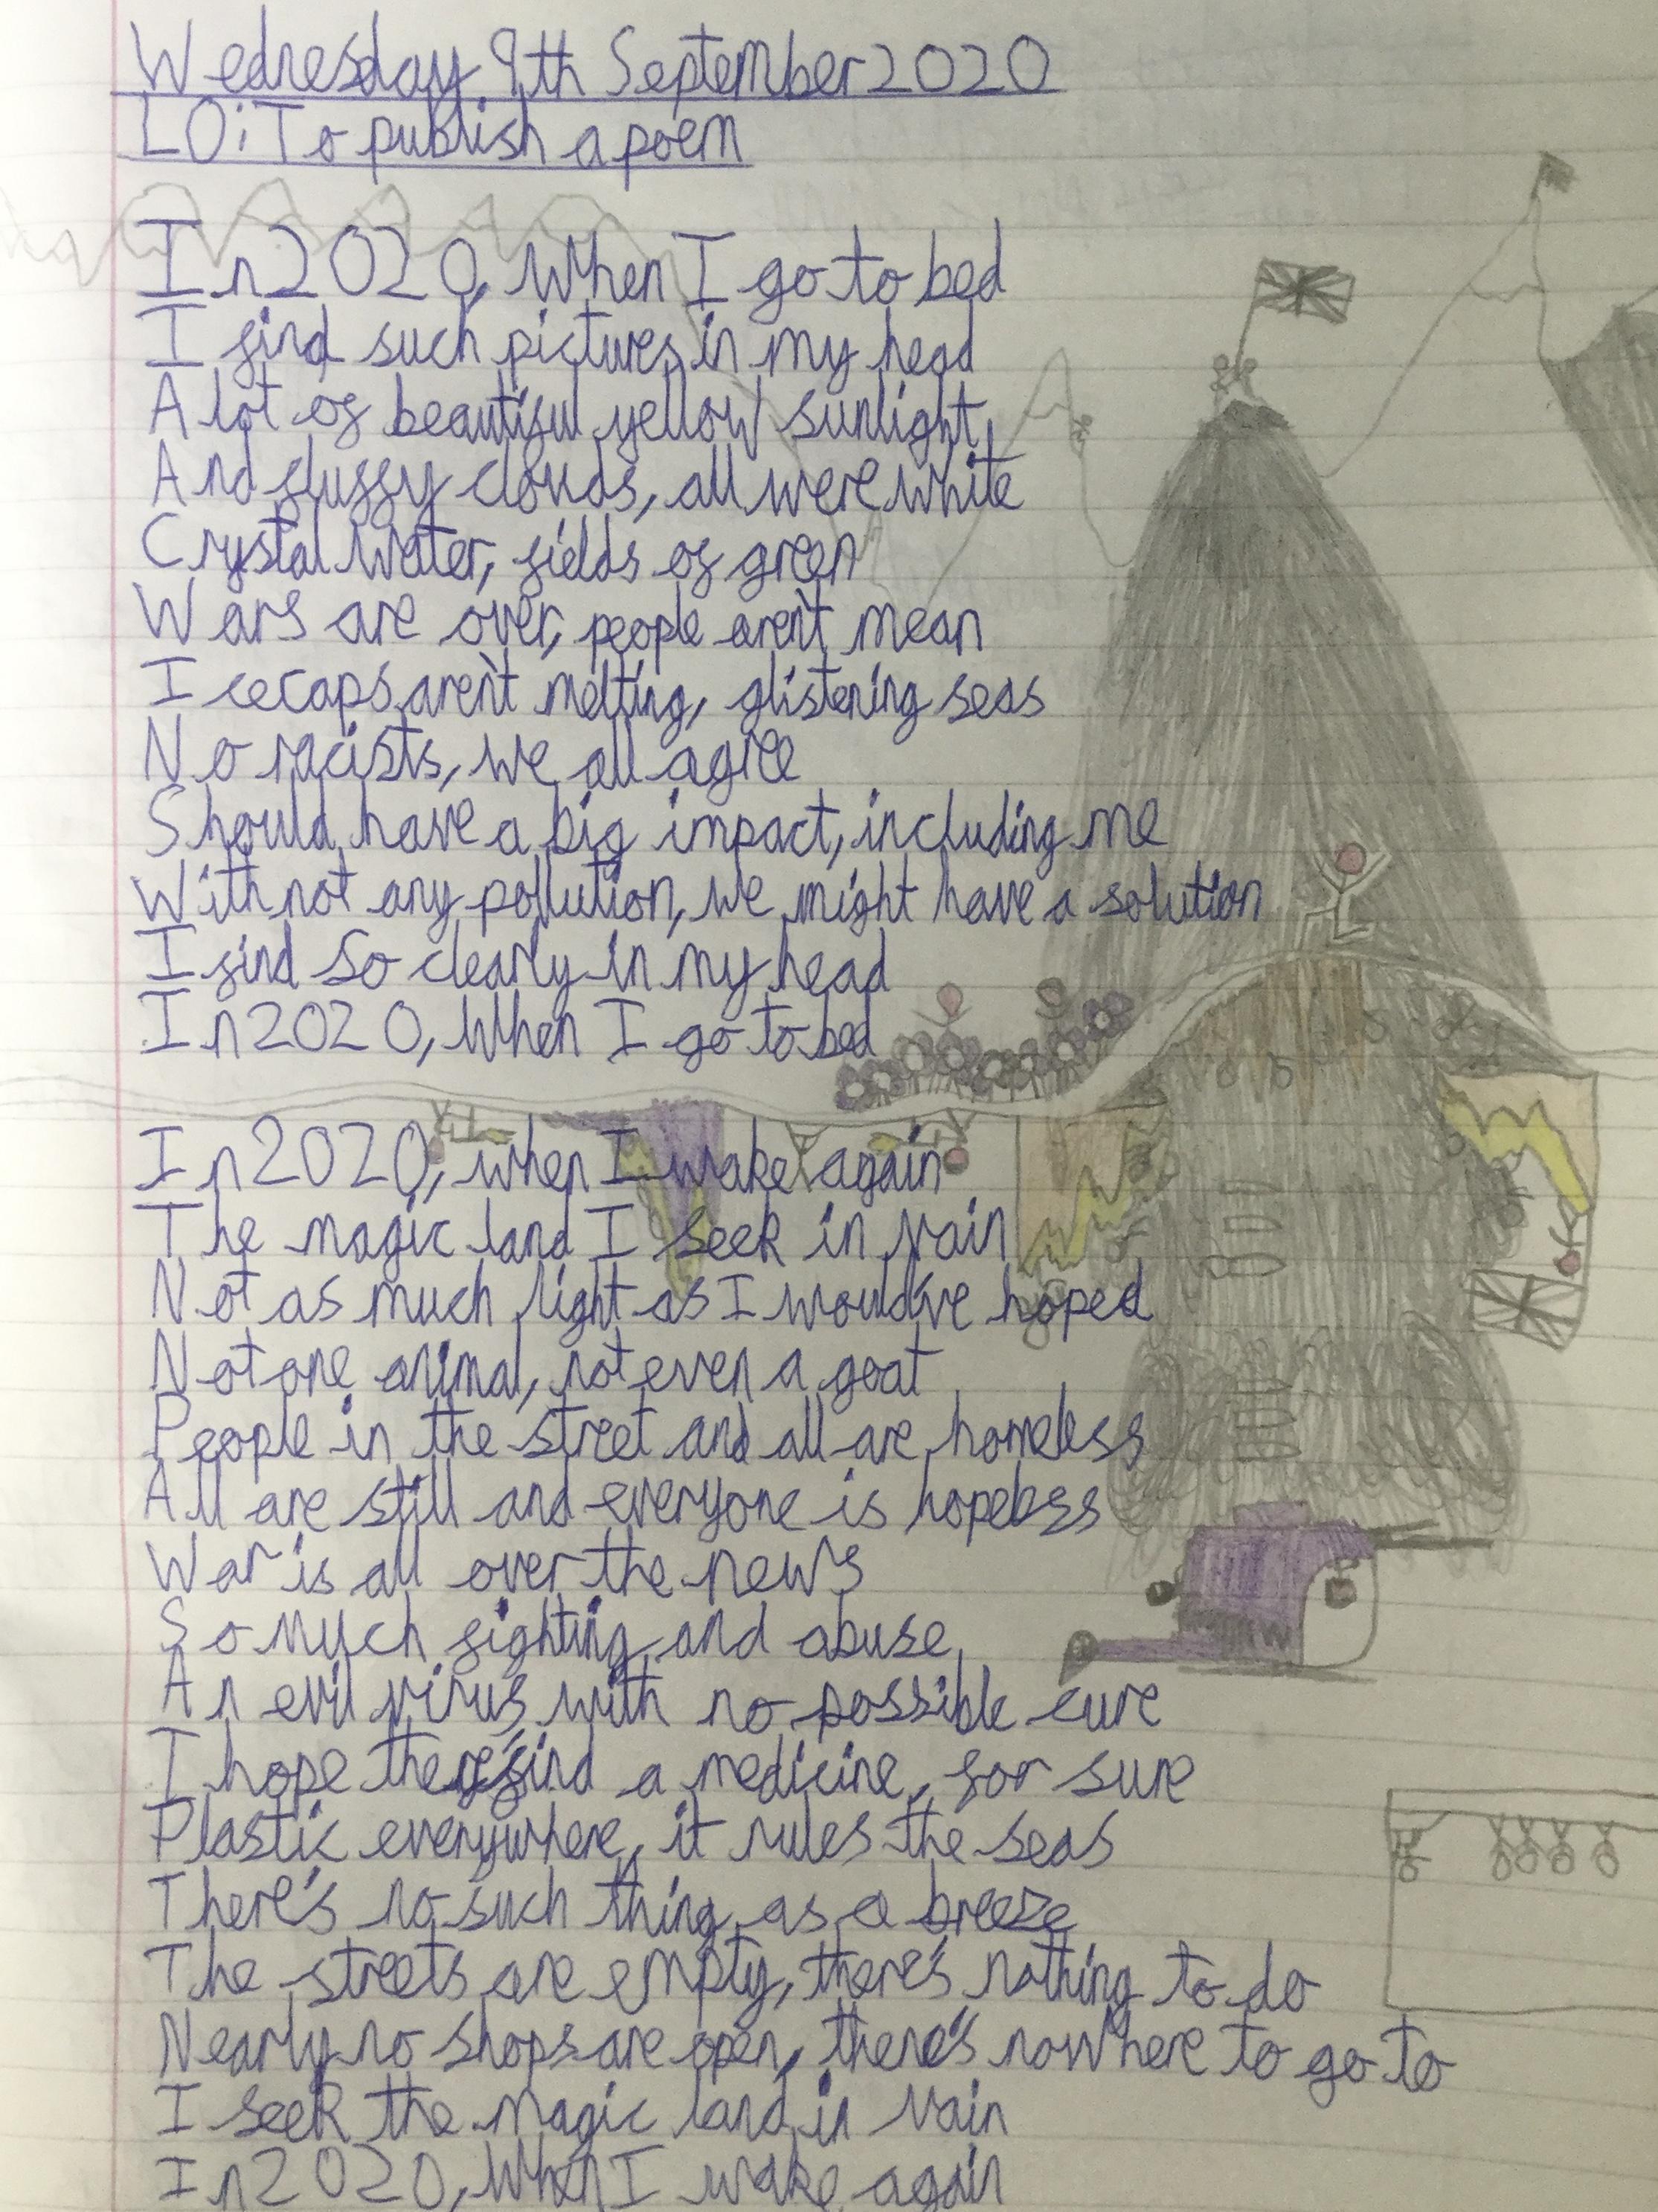 Wednesday 9th September 2020
LO: To publish a poem
In 2020, when I go to bed
I find such pictures in my head
A lot of beautiful yellow sunlight,
And fluffy clouds, all were white
Crystal water, fields of green
Wars are over, people aren't mean
Icecaps aren't melting, glistening seas
No racists, we all agree
Should have a big impact, including me
With not any pollution, we might have a solution
I find so clearly in my head
In 2020, when I go to bed
In 2020, when I wake again
The magic land I seek in vain
Not as much light as I would've hoped
Not one animal, not even a goat
People in the street and all are homeless
All are still and everyone is hopeless
War is all over the news
So much fighting and abuse
An evil virus, with no possible cure
I hope find a medicine, for sure
Plastic everywhere, it rules the seas
There's no such thing as a breeze
The streets are empty, there's nothing to do
Nearly no shops are open, there's nowhere to go to
I seek the magic land in vain
In 2020, when I wake again